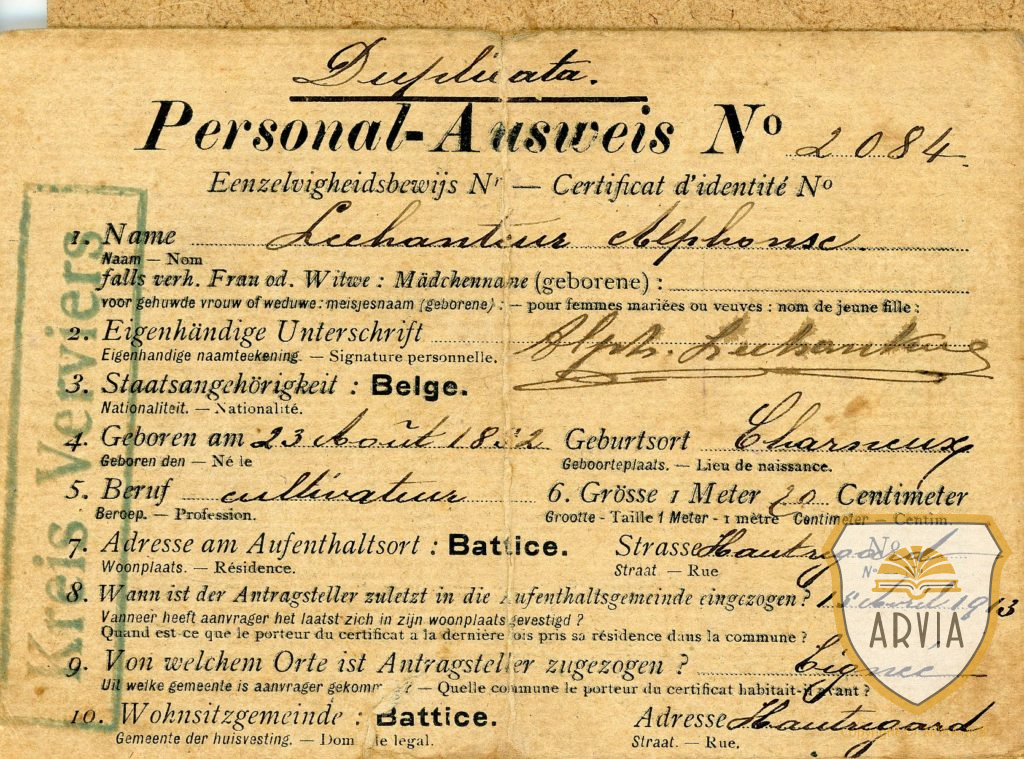 Duplicata.
Personal-Ausweis Nº 2084
Eenzelvigheidsbewijs Nr — Certificat d'identité Nº
1. Name Lechanteur Alphonse.
Naam — Nom
falls verh. Frau od. Witwe : Mädchenname (geborene) :
voor gehuwde vrouw of weduwe: meisjesnaam (geborene) : — pour femmes mariées ou veuves : nom de jeune fille :
2. Eigenhändige Unterschrift Alph. Lechanteur
Eigenhandige naamteekening. — Signature personnelle.
3. Staatsangehörigkeit : Belge.
Nationaliteit. — Nationalité.
4. Geboren am 23 Août Geburtsort Charneux
Geboren den — Né le Geboorteplaats. — Lieu de naissance.
5. Beruf cultivateur 6. Grösse 1 Meter Centimeter
Beroep. — Profession. Grootte - Taille 1 Meter - 1 mètre Centimeter — Centim.
7. Adresse am Aufenthaltsort : Battice. Strasse Hautregard Nº
Woonplaats. — Résidence. Straat. — Rue Nº
8. Wann ist der Antragsteller zuletzt in die Aufenthaltsgemeinde eingezogen ? Avril 1913
Vanneer heeft aanvrager het laatst zich in zijn woonplaats gevestigd ?
Quand est-ce que le porteur du certificat a la dernière fois pris sa résidence dans la commune ?
9. Von welchem Orte ist Antragsteller zugezogen ?
Uit welke gemeente is aanvrager gekomen ? — Quelle commune le porteur du certificat habitait-il avant ?
10. Wohnsitzgemeinde : Battice. Adresse Hautregard
Gemeente der huisvesting. — Domicile legal. Straat. — Rue.
Kreis Verviers
ARVIA